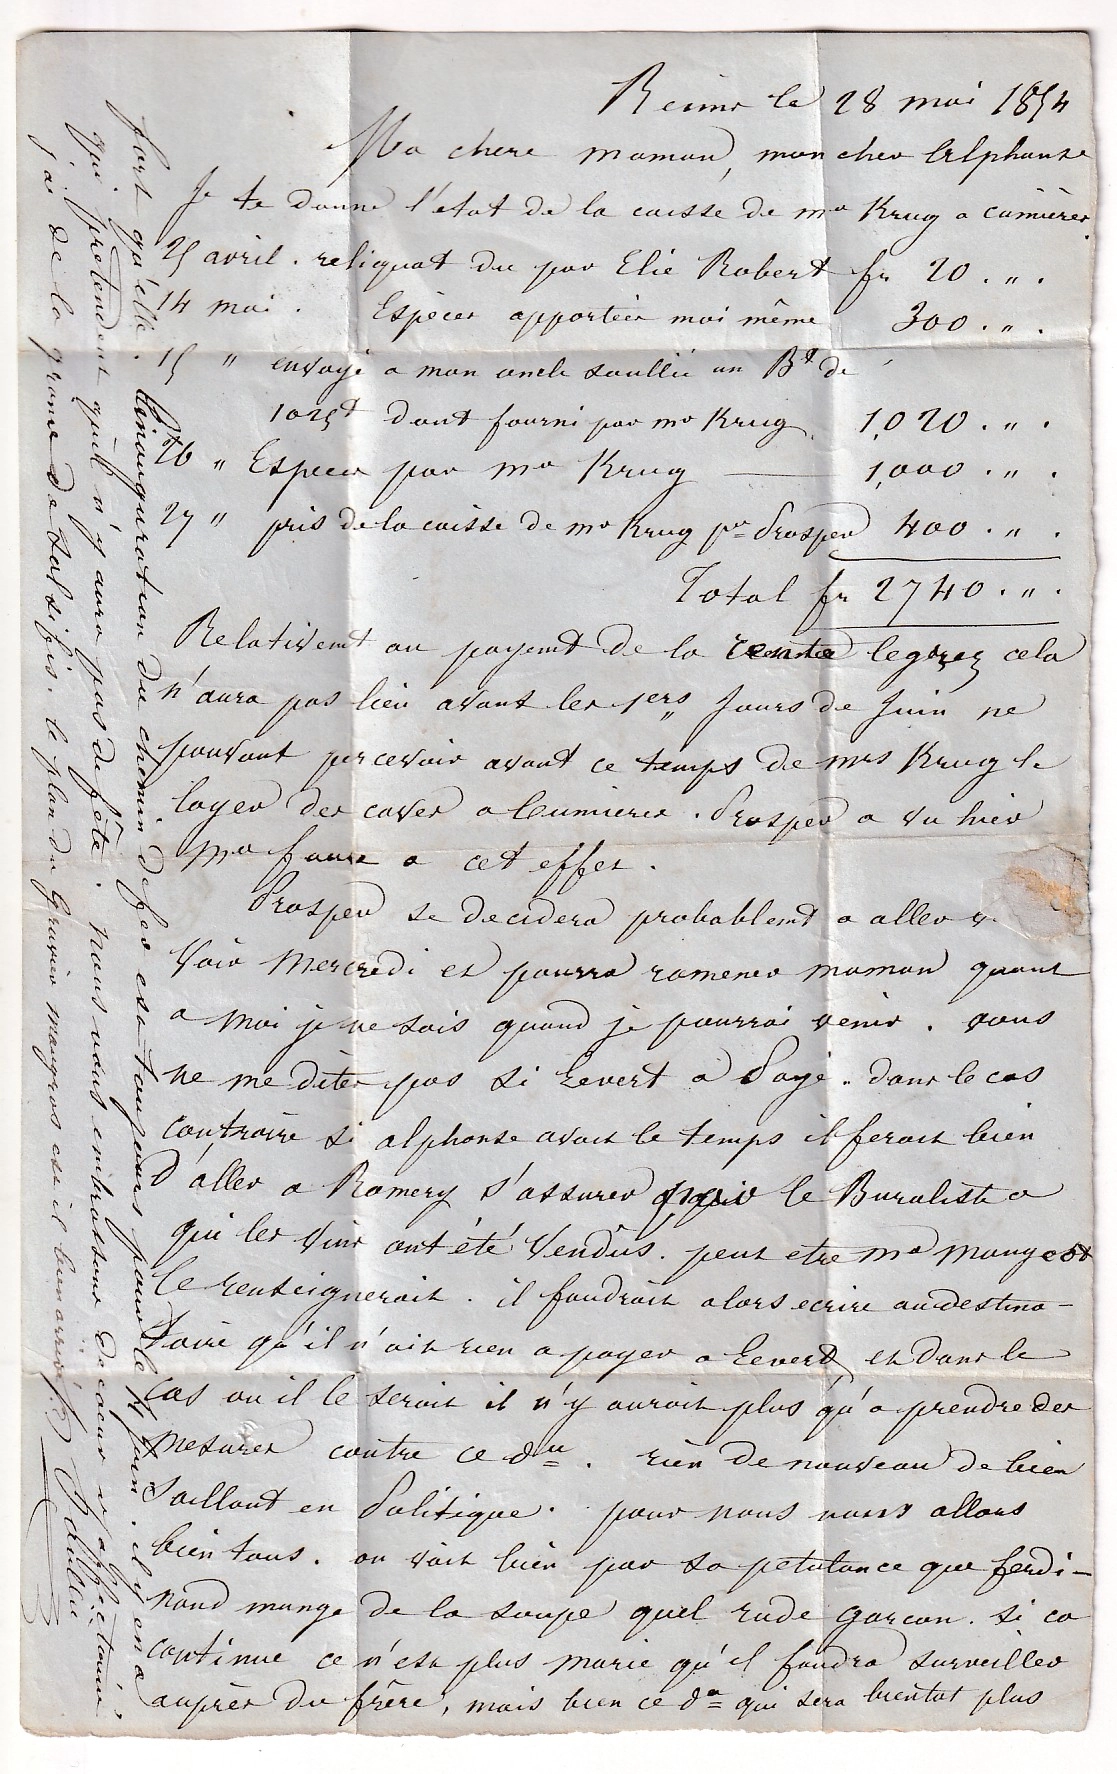 Reims le 28 mai 1854
Ma chere maman, mon cher Alphonse
Je te donne l'état de la caisse de mr Krug a cumières.
25 avril . reliquat du par Elie Robert fr 20 . " .
14 mai . Espèces apportées moi même 300 . " .
15 " envoyé a mon oncle soullié un Bt de
1025t dont fourni par mr Krug . 1,020 . " .
26 " Espèces par mr Krug — 1,000 . " .
27 " pris de la caisse de mr Krug pr Prosper 400 . " .
Total fr 2740 . " .
Relativemt au payemt de la rente legerez cela
n'aura pas lieu avant les 1ers Jours de Juin ne
pouvant percevoir avant ce temps de mrs Krug le
loyer des caves a Cumieres . Prosper a vu hier
Mr a cet effet .
Prosper se decidera probablemt a aller v.
voir Mercredi et pourra ramener maman quant
a moi je ne sais quand je pourrai venir . vous
ne me dites pas si Levert a Payé . dans le cas
contraire si alphonse avait le temps il ferait bien
d'aller a Romery s'assurer par le Buraliste a
qui les vins ont été vendûs . peut etre mr Mangeot
le renseignerait . il faudrait alors ecrire au destina-
taire qu'il n'ait rien a payer a Levert, et dans le
cas ou il le serait il n'y aurait plus qu'a prendre des
mesures contre ce du . rien de nouveau de bien
saillant en Politique . pour nous nous allons
bien tous . on voit bien par sa petulance que ferdi-
nand mange de la soupe quel rude garcon . si ca
continue ce n'est plus marie qu'il faudra surveiller
auprès du frère, mais bien ce dr qui sera bientot plus
fort qu'elle . L'inauguration du chemin de fer est toujours pour le 4 juin . il y en a
qui pretendent qu'il n'y aura pas de fête . Nous vous embrassons de coeur v. affectionné
j'ai de la graine de salsifis . le plan du Gruvier mangros est il bien arrivé